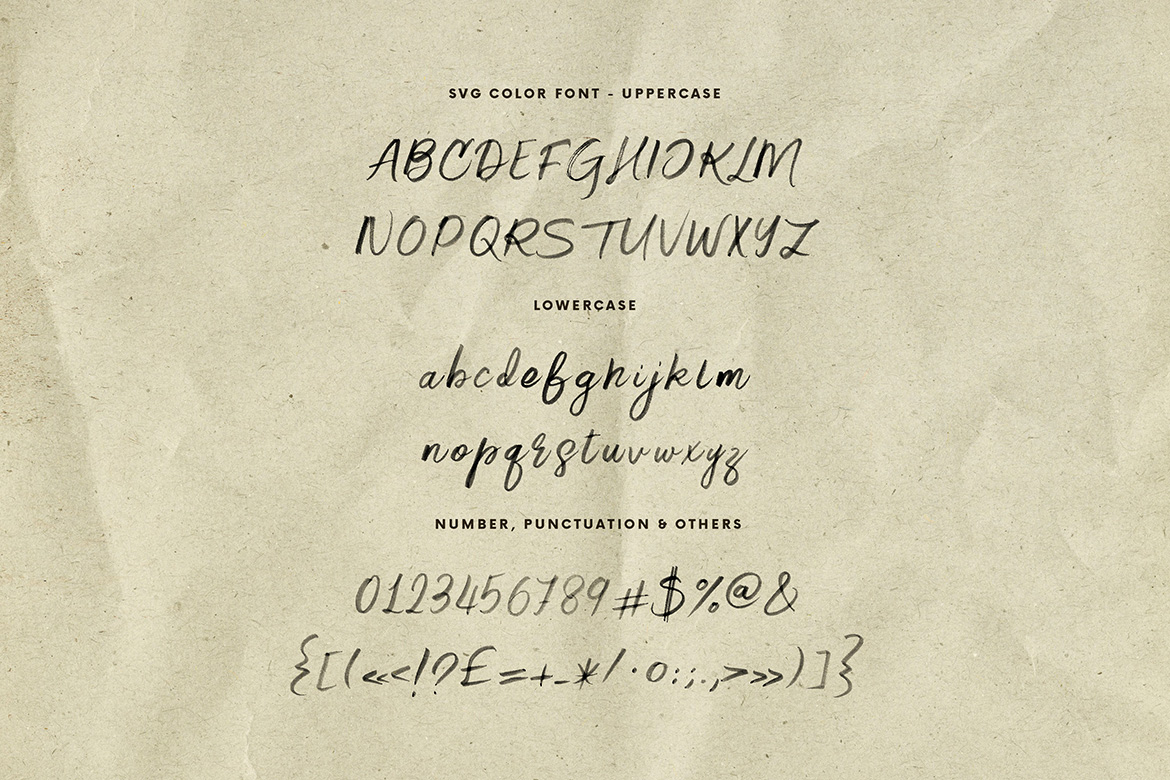 SVG COLOR FONT - UPPERCASE
ABCDEFGHIJKLM
NOPQRSTUVWXYZ
LOWERCASE
abcdefghijklm
nopqrstuvwxyz
NUMBER, PUNCTUATION & OTHERS
0123456789#$%@&
{[(«<!?£=+-*/·o:;.,>»)]}